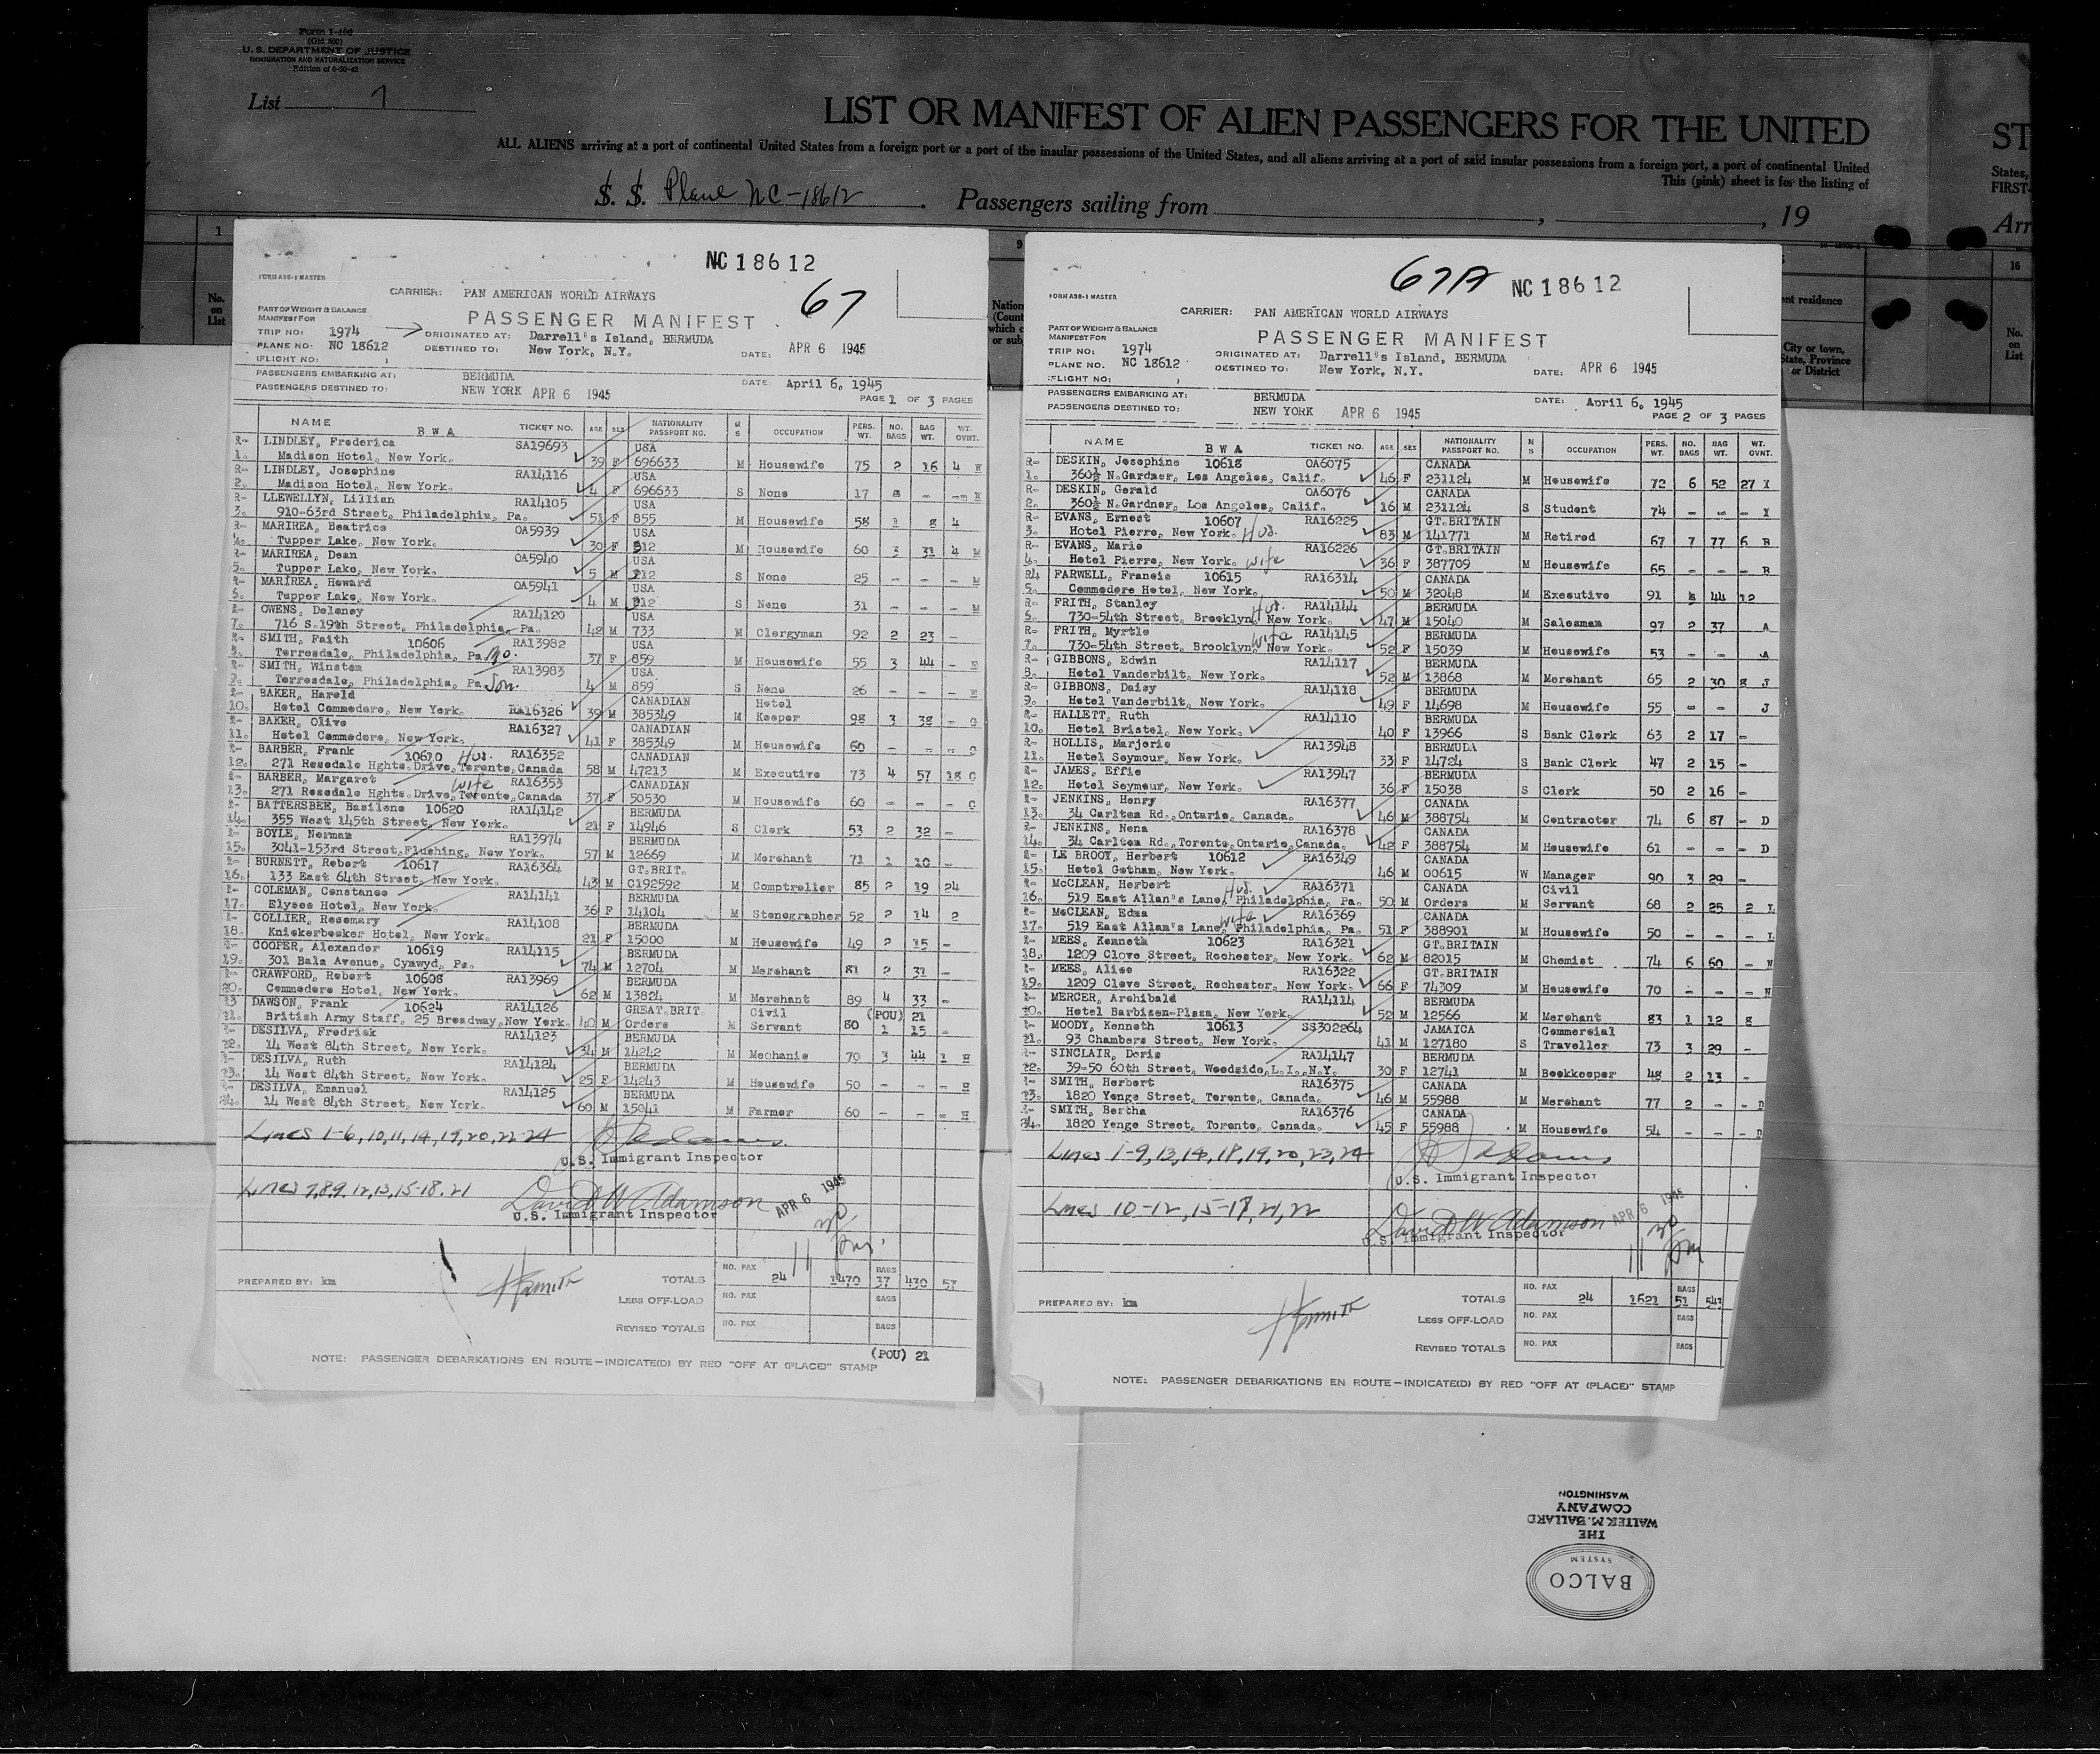 Form I-400
(Old 500)
U. S. DEPARTMENT OF JUSTICE
IMMIGRATION AND NATURALIZATION SERVICE
Edition of 6-20-42
List 7
LIST OR MANIFEST OF ALIEN PASSENGERS FOR THE UNITED
ST
ALL ALIENS arriving at a port of continental United States from a foreign port or a port of the insular possessions of the United States, and all aliens arriving at a port of said insular possessions from a foreign port, a port of continental United
States,
This (pink) sheet is for the listing of
FIRST-
S. S. Plane NC-18612 Passengers sailing from , , 19
Arr
1
9
16
No. on List
ent residence
City or town, State, Province or District
No. on List
NC 18612
67
FORM ABS-1 MASTER
CARRIER: PAN AMERICAN WORLD AIRWAYS
PASSENGER MANIFEST
PART OF WEIGHT & BALANCE
MANIFEST FOR
TRIP NO: 1974 ORIGINATED AT: Darrell's Island, BERMUDA
PLANE NO: NC 18612 DESTINED TO: New York, N.Y. DATE: APR 6 1945
(FLIGHT NO: )
PASSENGERS EMBARKING AT: BERMUDA DATE: April 6, 1945
PASSENGERS DESTINED TO: NEW YORK APR 6 1945 PAGE 1 OF 3 PAGES
NAME B W A TICKET NO. AGE SEX NATIONALITY PASSPORT NO. M S OCCUPATION PERS. WT. NO. BAGS BAG WT. WT. OVNT.
R- LINDLEY, Frederica SA19693 USA
1. Madison Hotel, New York. 39 F 696633 M Housewife 75 2 16 4
R- LINDLEY, Josephine RA14116 USA
2. Madison Hotel, New York. 4 F 696633 S None 17 - - -
R- LLEWELLYN, Lillian RA14105 USA
3. 910-63rd Street, Philadelphia, Pa. 51 F 855 M Housewife 58 1 8 4
R- MARIREA, Beatrice OA5939 USA
4. Tupper Lake, New York. 30 F 312 M Housewife 60 3 31 4 M
R- MARIREA, Dean OA5940 USA
5. Tupper Lake, New York. 5 M 312 S None 25 - - - M
R- MARIREA, Howard OA5941 USA
6. Tupper Lake, New York. 4 M 312 S None 31 - - - M
R- OWENS, Delaney RA14120 USA
7. 716 S.19th Street, Philadelphia, Pa. 42 M 733 M Clergyman 92 2 23 -
R- SMITH, Faith 10606 RA13982 USA
8. Terresdale, Philadelphia, Pa. Mo. 37 F 859 M Housewife 55 3 44 -
R- SMITH, Winston RA13983 USA
9. Terresdale, Philadelphia, Pa. Son. 4 M 859 S None 26 - - -
R- BAKER, Harold CANADIAN Hotel
10. Hotel Commodore, New York. RA16326 39 M 385349 M Keeper 98 3 38 - O
R- BAKER, Olive RA16327 CANADIAN
11. Hotel Commodore, New York. 41 F 385349 M Housewife 60 - - - O
R- BARBER, Frank 10610 Hus. RA16352 CANADIAN
12. 271 Rosedale Hghts.Drive,Toronto,Canada 58 M 47213 M Executive 73 4 57 18 C
R- BARBER, Margaret Wife RA16353 CANADIAN
13. 271 Rosedale Hghts.Drive,Toronto,Canada 37 F 50530 M Housewife 60 - - - C
R- BATTERSBEE, Basilene 10620 RA14142 BERMUDA
14. 355 West 145th Street, New York. 21 F 14946 S Clerk 53 2 32 -
R- BOYLE, Norman RA13974 BERMUDA
15. 3041-153rd Street,Flushing, New York. 57 M 12669 M Merchant 71 1 10 -
R- BURNETT, Robert 10617 RA16364 GT.BRIT.
16. 133 East 64th Street, New York. 43 M C192592 M Comptroller 85 2 19 24
R- COLEMAN, Constance RA14141 BERMUDA
17. Elysee Hotel, New York. 36 F 14104 M Stenographer 52 2 14 2
R- COLLIER, Rosemary RA14108 BERMUDA
18. Knickerbocker Hotel, New York. 21 F 15000 M Housewife 49 2 15 -
R- COOPER, Alexander 10619 RA14115 BERMUDA
19. 301 Bala Avenue, Cynwyd, Pa. 74 M 12704 M Merchant 81 2 31 -
R- CRAWFORD, Robert 10608 RA13969 BERMUDA
20. Commodore Hotel, New York. 62 M 13824 M Merchant 89 4 33 -
R3 DAWSON, Frank 10624 RA14126 GREAT.BRIT. Civil (POU) 21
21. British Army Staff, 25 Broadway,New York. 40 M Orders M Servant 80 1 15 -
R- DESILVA, Fredrick RA14123 BERMUDA
22. 14 West 84th Street, New York. 34 M 14242 M Mechanic 70 3 44 1 H
R- DESILVA, Ruth RA14124 BERMUDA
23. 14 West 84th Street, New York. 25 F 14243 M Housewife 50 - - - H
R- DESILVA, Emanuel RA14125 BERMUDA
24. 14 West 84th Street, New York. 60 M 15041 M Farmer 60 - - - H
Lines 1-6, 10, 11, 14, 19, 20, 22-24
U.S. Immigrant Inspector
Lines 7,8,9, 12, 13, 15-18, 21 David W Adamson
U.S. Immigrant Inspector APR 6 1945
11 30 pm.
PREPARED BY: km HSmith TOTALS NO. PAX 24 1470 BAGS 37 430 57
LESS OFF-LOAD NO. PAX BAGS
REVISED TOTALS NO. PAX BAGS
(POU) 21
NOTE: PASSENGER DEBARKATIONS EN ROUTE—INDICATE(D) BY RED "OFF AT (PLACE)" STAMP
67A NC 18612
FORM ABS-1 MASTER
CARRIER: PAN AMERICAN WORLD AIRWAYS
PASSENGER MANIFEST
PART OF WEIGHT & BALANCE
MANIFEST FOR
TRIP NO: 1974 ORIGINATED AT: Darrell's Island, BERMUDA
PLANE NO. NC 18612 DESTINED TO: New York, N.Y. DATE: APR 6 1945
(FLIGHT NO: )
PASSENGERS EMBARKING AT: BERMUDA DATE: April 6, 1945
PASSENGERS DESTINED TO: NEW YORK APR 6 1945 PAGE 2 OF 3 PAGES
NAME B W A TICKET NO. AGE SEX NATIONALITY PASSPORT NO. M S OCCUPATION PERS. WT. NO. BAGS BAG WT. WT. OVNT.
R- DESKIN, Josephine 10618 OA6075 CANADA
1. 360½ N.Gardner, Los Angeles, Calif. 46 F 231124 M Housewife 72 6 52 27 I
R- DESKIN, Gerald OA6076 CANADA
2. 360½ N.Gardner, Los Angeles, Calif. 16 M 231124 S Student 74 - - - I
R- EVANS, Ernest 10607 RA16225 GT.BRITAIN
3. Hotel Pierre, New York. Hus. 83 M 141771 M Retired 67 7 77 6 B
R- EVANS, Marie RA16226 GT.BRITAIN
4. Hotel Pierre, New York. Wife 36 F 387709 M Housewife 65 - - - B
R4 FARWELL, Francis 10615 RA16314 CANADA
5. Commodore Hotel, New York. 50 M 32048 M Executive 91 44 12
R- FRITH, Stanley Hus. RA14144 BERMUDA
6. 730-54th Street, Brooklyn, New York. 47 M 15040 M Salesman 97 2 37 A
R- FRITH, Myrtle Wife RA14145 BERMUDA
7. 730-54th Street, Brooklyn, New York. 52 F 15039 M Housewife 53 - - A
R- GIBBONS, Edwin RA14117 BERMUDA
8. Hotel Vanderbilt, New York. 52 M 13868 M Merchant 65 2 30 8 J
R- GIBBONS, Daisy RA14118 BERMUDA
9. Hotel Vanderbilt, New York. 49 F 14698 M Housewife 55 - - J
R- HALLETT, Ruth RA14110 BERMUDA
10. Hotel Bristol, New York. 40 F 13966 S Bank Clerk 63 2 17 -
R- HOLLIS, Marjorie RA13948 BERMUDA
11. Hotel Seymour, New York. 33 F 14724 S Bank Clerk 47 2 15 -
R- JAMES, Effie RA13947 BERMUDA
12. Hotel Seymour, New York. 36 F 15038 S Clerk 50 2 16 -
R- JENKINS, Henry RA16377 CANADA
13. 34 Carlton Rd.,Ontario, Canada. 46 M 388754 M Contractor 74 6 87 - D
R- JENKINS, Nena RA16378 CANADA
14. 34 Carlton Rd.,Toronto,Ontario,Canada. 42 F 388754 M Housewife 61 - - - D
R- LE BROOY, Herbert 10612 RA16349 CANADA
15. Hotel Gotham, New York. 46 M 00615 W Manager 90 3 29 -
R- McCLEAN, Herbert Hus. RA16371 CANADA Civil
16. 519 East Allan's Lane, Philadelphia, Pa. 50 M Orders M Servant 68 2 25 2 L
R- McCLEAN, Edna Wife RA16369 CANADA
17. 519 East Allan's Lane, Philadelphia, Pa. 51 F 388901 M Housewife 50 - - - L
R- MEES, Kenneth 10623 RA16321 GT.BRITAIN
18. 1209 Clove Street, Rochester, New York. 62 M 82015 M Chemist 74 6 60 - N
R- MEES, Alice RA16322 GT.BRITAIN
19. 1209 Clove Street, Rochester, New York. 66 F 74309 M Housewife 70 - - - N
R- MERCER, Archibald RA14114 BERMUDA
20. Hotel Barbizon-Plaza, New York. 52 M 12566 M Merchant 83 1 12 8
R- MOODY, Kenneth 10613 SS302264 JAMAICA Commercial
21. 93 Chambers Street, New York. 41 M 127180 S Traveller 73 3 29 -
R- SINCLAIR, Doris RA14147 BERMUDA
22. 39-50 60th Street, Woodside,L.I.,N.Y. 30 F 12741 M Bookkeeper 48 2 13 -
R- SMITH, Herbert RA16375 CANADA
23. 1820 Yonge Street, Toronto, Canada. 46 M 55988 M Merchant 77 2 - - D
R- SMITH, Bertha RA16376 CANADA
24. 1820 Yonge Street, Toronto, Canada. 45 F 55988 M Housewife 54 - - - D
Lines 1-9, 13, 14, 18, 19, 20, 23, 24
U.S. Immigrant Inspector
Lines 10-12, 15-17, 21, 22 David W Adamson APR 6 1945
U.S. Immigrant Inspector
11 30 pm
PREPARED BY: km HSmith TOTALS NO. PAX 24 1621 BAGS 51 543
LESS OFF-LOAD NO. PAX BAGS
REVISED TOTALS NO. PAX BAGS
NOTE: PASSENGER DEBARKATIONS EN ROUTE—INDICATE(D) BY RED "OFF AT (PLACE)" STAMP
BALCO
SYSTEM
THE
WALTER M. BALLARD
COMPANY
WASHINGTON